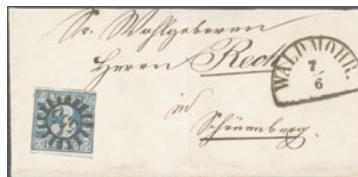 Sr. Wohlgeboren
Herrn Rech
in
Schönenberg.
WALDMOHR.
7
6